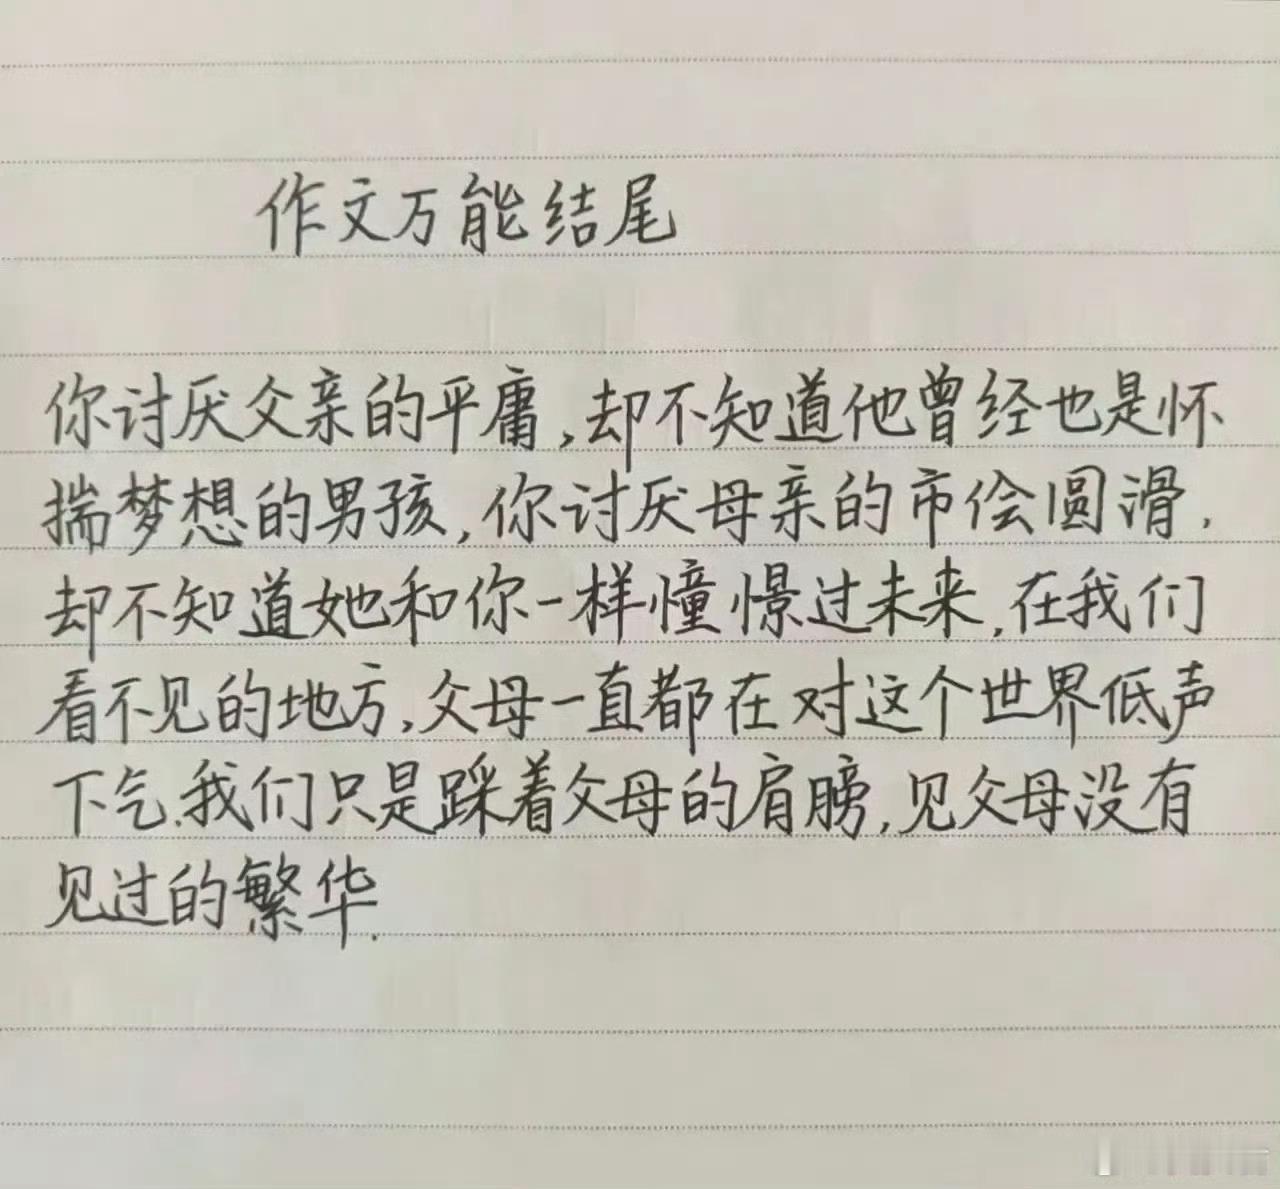 作文万能结尾
你讨厌父亲的平庸,却不知道他曾经也是怀
揣梦想的男孩,你讨厌母亲的市侩圆滑,
却不知道她和你一样憧憬过未来,在我们
看不见的地方,父母一直都在对这个世界低声
下气.我们只是踩着父母的肩膀,见父母没有
见过的繁华.